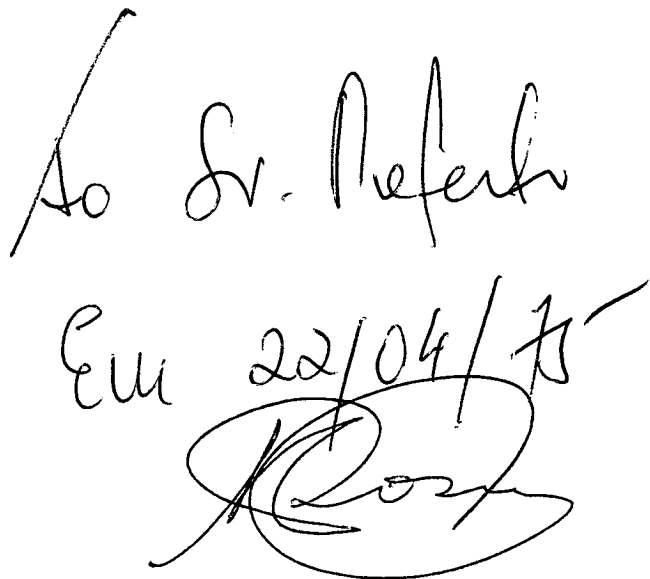 Ao Sr. Prefeito
Em 22/04/75